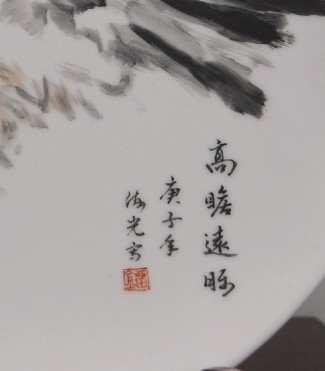 高瞻遠
庚子年
海光写